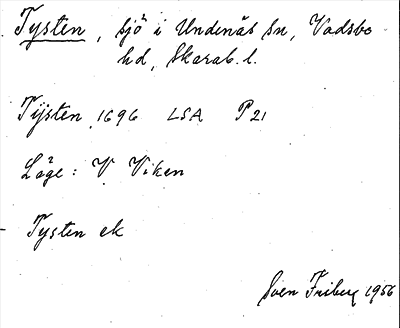 Tysten, sjö i Undenäs sn, Vadsbo
hd, Skarab. l.
Tijsten 1696 LSA P21
Läge: V Viken
Tysten ek
Sven Friberg 1956